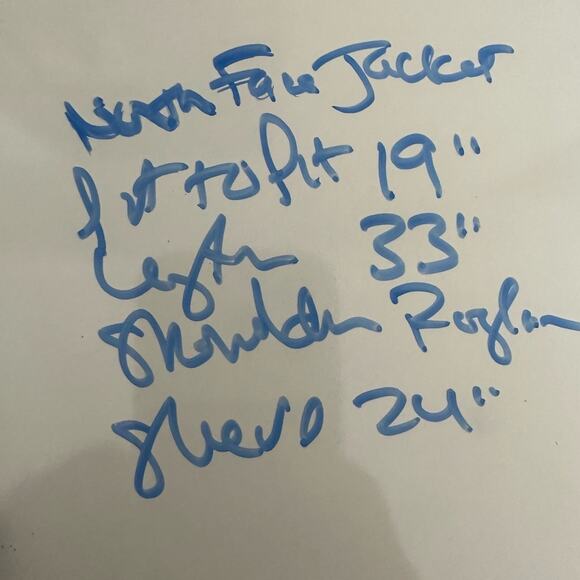 North Face Jacket
pit to pit 19"
Length 33"
Shoulder Raglan
Sleeve 24"